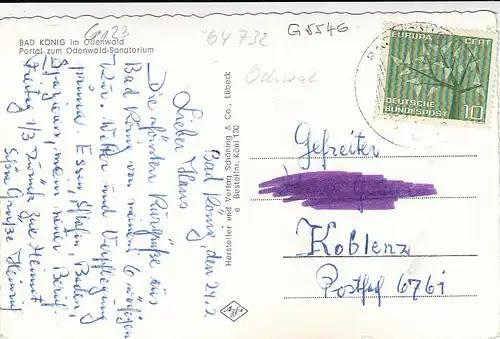 BAD KÖNIG im Odenwald
Portal zum Odenwald-Sanatorium
6123
64732
G5546
Odenwal
EUROPA CEPT
DEUTSCHE
BUNDESPOST
10
Bad König, den 24.2.
Lieber Hans
Die schönsten Kurgrüße aus
Bad König von meiner 6 wöchigen
Kur. Wetter und Verpflegung
prima. Essen, Schlafen, Baden,
Spazieren, mein neuer Beruf.
Freitag 1/3 zurück zur Heimat
Grüße Heinrich
Hersteller und Verlag Schöning & Co., Lübeck
e Bestellnr. Köln 130
Agfa
Gefreiter
Koblenz
Postfach 6761